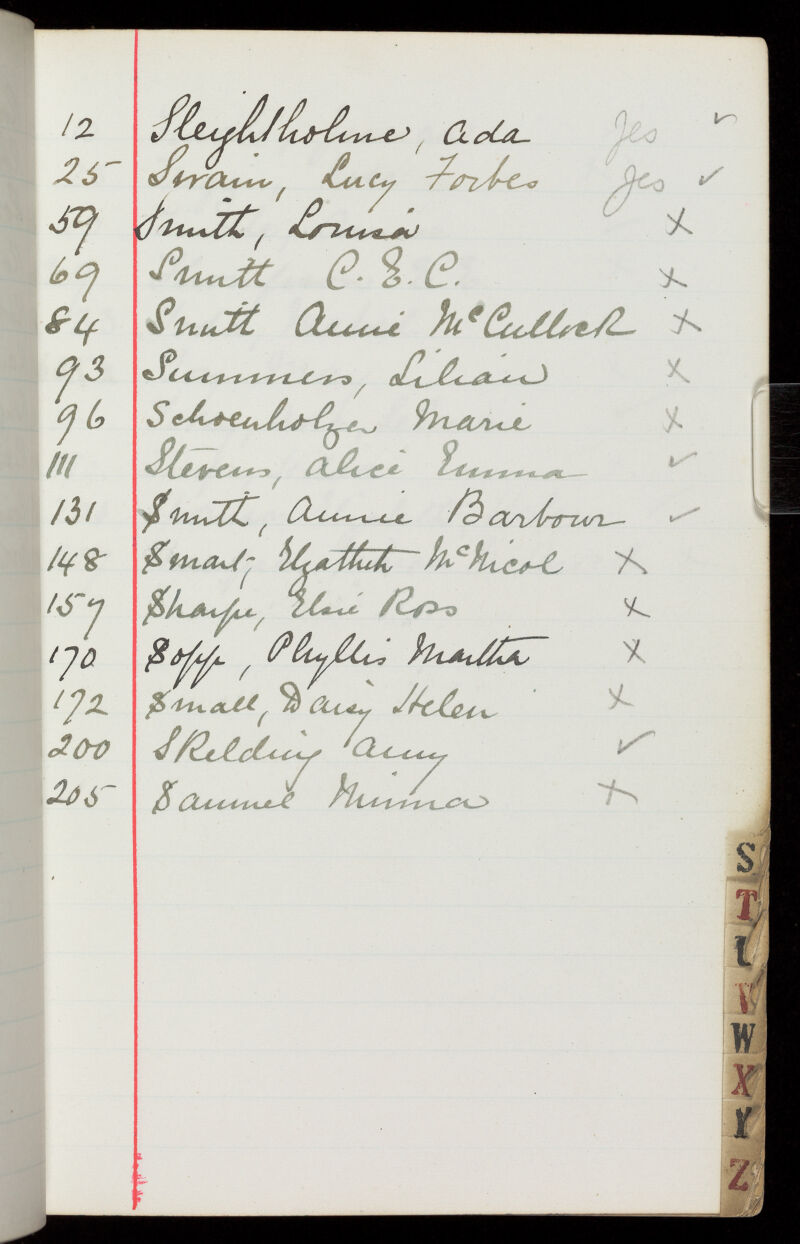 12 Sleightholme, Ada Yes ✓
25 Swain, Lucy Forbes Yes ✓
59 Smith, Louisa X
69 Smith C. E. C. X
84 Smith Annie McCulloch X
93 Summers, Lilian X
96 Schoenholzer Marie X
111 Stevens, Alice Emma ✓
131 Smith, Annie Barbour ✓
148 Smart, Elizabeth McNicol X
157 Sharpe, Elsie Ross X
170 Sopp, Phyllis Martha X
172 Small, Daisy Helen X
200 Skelding Amy ✓
205 Samuel Minna X
S
T
U
V
W
X
Y
Z